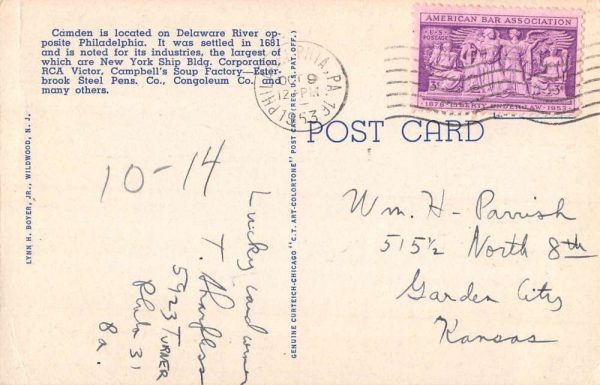 Camden is located on Delaware River op-
posite Philadelphia. It was settled in 1681
and is noted for its industries, the largest of
which are New York Ship Bldg. Corporation,
RCA Victor, Campbell's Soup Factory—Ester-
brook Steel Pens. Co., Congoleum Co., and
many others.
LYNN H. BOYER, JR., WILDWOOD, N. J.
10-14
Lucky card owner
T. Sharpless
5923 TURNER
Phila 31
Pa.
GENUINE CURTEICH-CHICAGO "C.T. ART-COLORTONE" POST CARD (REG. U.S. PAT. OFF.)
PHILADELPHIA, PA.
9
12 PM
1953
AMERICAN BAR ASSOCIATION
U·S·
POSTAGE
3¢
3¢
1878 LIBERTY UNDER LAW 1953
POST CARD
Wm. H- Parrish
515½ North 8th
Garden City
Kansas